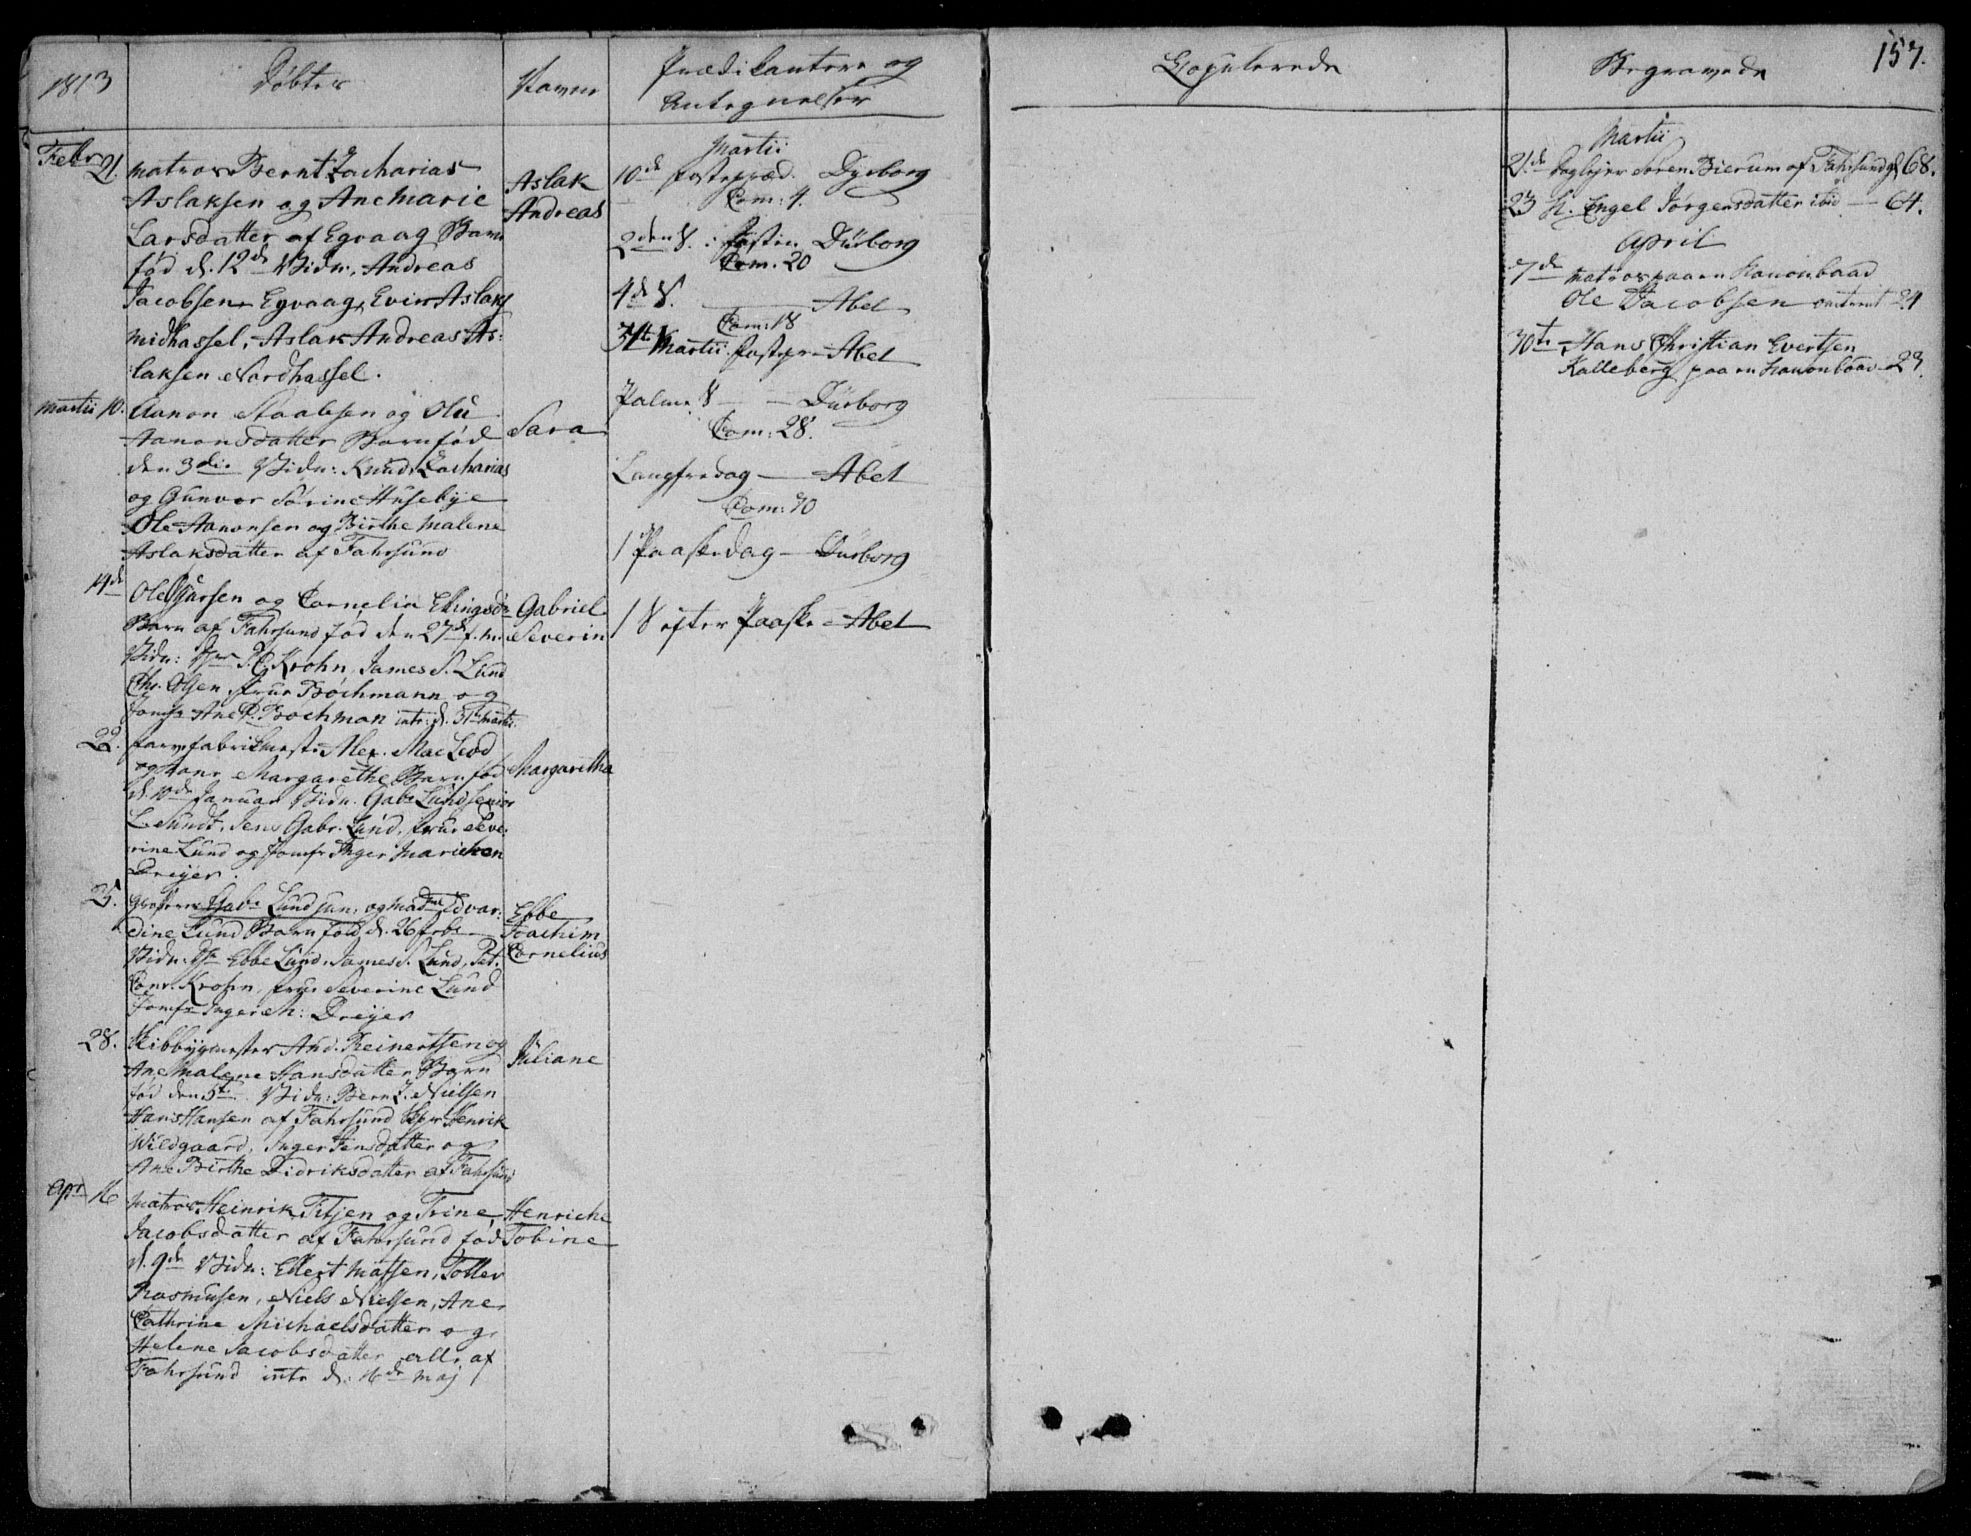 1813
Døbte
Navne
Prædikantere og
Antegnelser
Febr 21.
matros Bernt Zacharias
Aslaksen og Ane Marie
Larsdatter af Egvaag Barn
fød d. 12d Vidn: Andreas
Jacobsen Egvaag, Evin Aslaks
midhassel, Aslak Andreas As:
laksen Nordhassel.
Aslak
Andreas
Martii 10.
Aanon Staalesen og Olu
Aanonsdatter Barn fød
den 3die Vidn: Knud Zacharias
og Gunvor Sørine Husebye
Ole Aanonsen og Birthe Malene
Aslaksdatter af Fahrsund
Sara
14de
Ole Sjursen og Cornelia Ellingsd:
Barn af Fahrsund fød den 27d f. m.
Vidn: Hr P. C. Krohn, James S. Lund
Chr. Olsen, frue Bochmann og
Jomfr Ane P. Bochman intr: d. 31te Martii
Gabriel
Severin
22.
farvefabrikmest: Alex. Mac Leod
og Margarethe Barn fød
d. 10de Januar Vidn. Gabr Lund Senior
L. Sundt, Jens Gabr. Lund, frue Seve:
rine Lund og Jomfr Inger Marichen
Dreyer.
Margaretha
25.
Gabr Lund jun: og Mad Edvar:
dine Lund Barn fød d. 26 febr
Vidn: Hr Ebbe Lund, James S. Lund, Pet.
Conr. Krohn, frue Severine Lund
Jomfr Inger M: Dreyer
Ebbe
Joachim
Cornelius
28.
Skibbygmester And. Reinertsen og
Ane Malene Hansdatter Barn
fød den 5te Vidn: Bern Z. Nielsen
Hans Hansen af Fahrsund Henrik
Wildgaard, Inger Jensdatter og
Ane Birthe Didriksdatter af Fahrsund
Juliane
Apr 16
matros Heinrik Titjen og Trine
Jacobsdatter af Fahrsund fød
d. 9de Vidn: Ellert Matsen, Toller
Rasmusen, Niels Nielsen, Ane
Cathrine Michaelsdatter og
Helene Jacobsdatter alle af
Fahrsund intr d. 16de Maj
Henriche
Tobine
Martii
10de fastepræd. Dyrborg
Com: 4.
2den S. i fasten Dürborg
Com. 20
4d S. — Abel
Com: 18
31te Martii fastepr — Abel
Palme S — Dürborg
Com: 28.
Langfredag — Abel
Com: 70
1 Paaskedag — Dürborg
1 S efter Paaske — Abel
Copulerede
Begravede
157.
Martii
21de Daglejer Søren Bierum af Fahrsund gl 68.
23 Engel Jørgensdatter ibid — 64.
April
7de matros paa en Kanonbaad
Ole Jacobsen 24
30te Hans Christian Evertsen
Kalleberg paa en Kanonbaad 23.